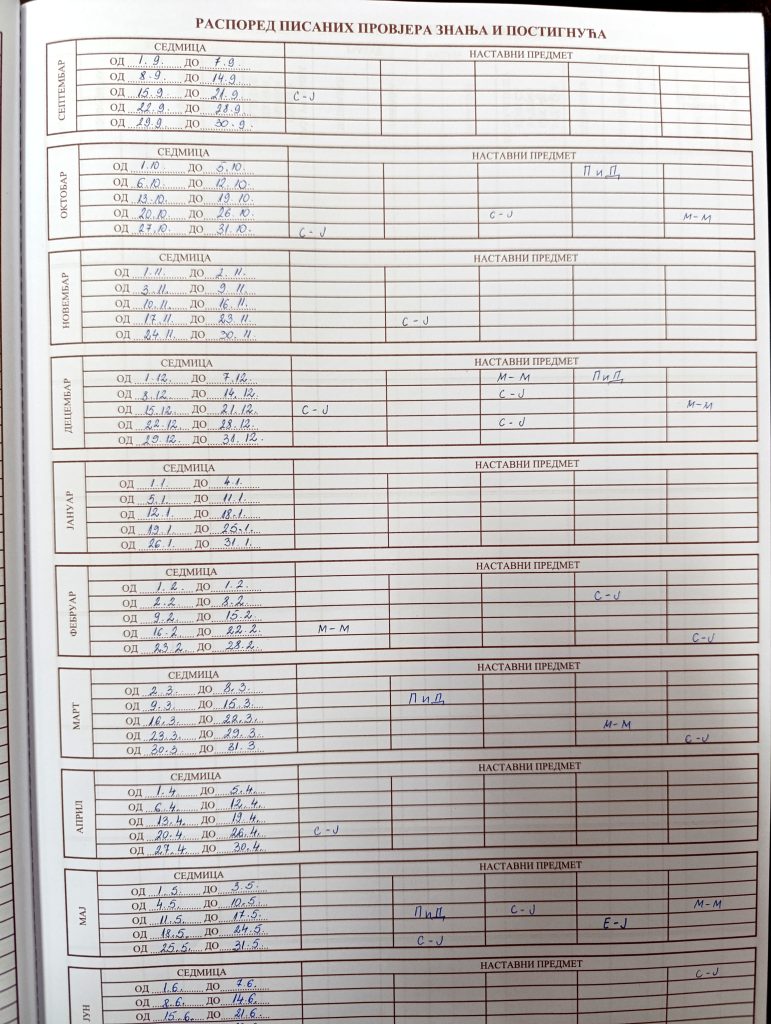 РАСПОРЕД ПИСАНИХ ПРОВЈЕРА ЗНАЊА И ПОСТИГНУЋА
СЕПТЕМБАР
СЕДМИЦА НАСТАВНИ ПРЕДМЕТ
ОД 1.9. ДО 7.9.
ОД 8.9. ДО 14.9.
ОД 15.9 ДО 21.9 С-Ј
ОД 22.9 ДО 28.9.
ОД 29.9 ДО 30.9.
ОКТОБАР
СЕДМИЦА НАСТАВНИ ПРЕДМЕТ
ОД 1.10. ДО 5.10. ПиД
ОД 6.10. ДО 12.10
ОД 13.10 ДО 19.10.
ОД 20.10 ДО 26.10. С-Ј М-М
ОД 27.10. ДО 31.10. С-Ј
НОВЕМБАР
СЕДМИЦА НАСТАВНИ ПРЕДМЕТ
ОД 1.11. ДО 2.11.
ОД 3.11. ДО 9.11.
ОД 10.11. ДО 16.11.
ОД 17.11 ДО 23.11 С-Ј
ОД 24.11. ДО 30.11
ДЕЦЕМБАР
СЕДМИЦА НАСТАВНИ ПРЕДМЕТ
ОД 1.12. ДО 7.12 М-М ПиД
ОД 8.12 ДО 14.12. С-Ј
ОД 15.12 ДО 21.12. С-Ј М-М
ОД 22.12 ДО 28.12. С-Ј
ОД 29.12. ДО 31.12.
ЈАНУАР
СЕДМИЦА НАСТАВНИ ПРЕДМЕТ
ОД 1.1. ДО 4.1.
ОД 5.1. ДО 11.1.
ОД 12.1. ДО 18.1.
ОД 19.1 ДО 25.1.
ОД 26.1. ДО 31.1.
ФЕБРУАР
СЕДМИЦА НАСТАВНИ ПРЕДМЕТ
ОД 1.2. ДО 1.2.
ОД 2.2 ДО 8.2. С-Ј
ОД 9.2. ДО 15.2.
ОД 16.2. ДО 22.2. М-М
ОД 23.2. ДО 28.2. С-Ј
МАРТ
СЕДМИЦА НАСТАВНИ ПРЕДМЕТ
ОД 2.3. ДО 8.3.
ОД 9.3. ДО 15.3. ПиД
ОД 16.3. ДО 22.3.
ОД 23.3. ДО 29.3. М-М
ОД 30.3. ДО 31.3 С-Ј
АПРИЛ
СЕДМИЦА НАСТАВНИ ПРЕДМЕТ
ОД 1.4 ДО 5.4.
ОД 6.4. ДО 12.4.
ОД 13.4. ДО 19.4
ОД 20.4 ДО 26.4. С-Ј
ОД 27.4. ДО 30.4.
МАЈ
СЕДМИЦА НАСТАВНИ ПРЕДМЕТ
ОД 1.5. ДО 3.5.
ОД 4.5. ДО 10.5. М-М
ОД 11.5. ДО 17.5. ПиД С-Ј
ОД 18.5. ДО 24.5 Е-Ј
ОД 25.5. ДО 31.5 С-Ј
ЈУН
СЕДМИЦА НАСТАВНИ ПРЕДМЕТ
ОД 1.6. ДО 7.6. С-Ј
ОД 8.6. ДО 14.6.
ОД 15.6. ДО 21.6.